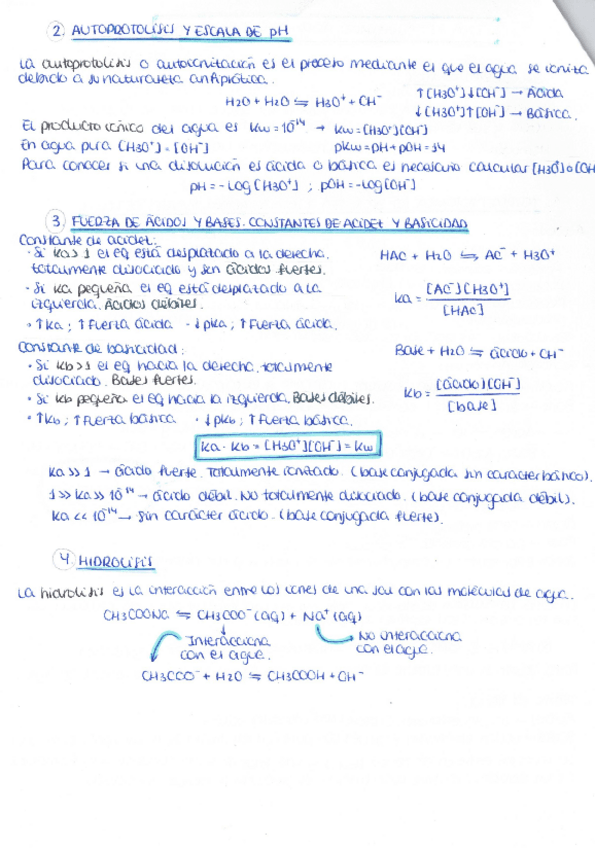 2. AUTOPROTOLISIS Y ESCALA DE pH
La autoprotolisis o autoionización es el proceso mediante el que el agua se ioniza
debido a su naturaleza anfiprótica.
H2O + H2O ⇋ H3O⁺ + OH⁻
↑[H3O⁺]↓[OH⁻] → Ácida
↓[H3O⁺]↑[OH⁻] → Básica.
El producto iónico del agua es Kw = 10⁻¹⁴ → Kw = [H3O⁺][OH⁻]
En agua pura [H3O⁺] = [OH⁻]
pKw = pH + pOH = 14
Para conocer si una disolución es ácida o básica es necesario calcular [H3O⁺] o [OH
pH = -Log[H3O⁺] ; pOH = -Log[OH⁻]
3. FUERZA DE ÁCIDOS Y BASES. CONSTANTES DE ACIDEZ Y BASICIDAD
Constante de acidez:
· Si Ka > 1 el eq está desplazado a la derecha,
totalmente disociado y son ácidos fuertes.
· Si Ka pequeña el eq está desplazado a la
izquierda. Ácidos débiles.
· ↑Ka ; ↑ Fuerza ácida · ↓pKa ; ↑ Fuerza ácida.
HAc + H2O ⇋ Ac⁻ + H3O⁺
Ka = [Ac⁻][H3O⁺] / [HAc]
Constante de basicidad:
· Si Kb > 1 el eq hacia la derecha, totalmente
disociado. Bases fuertes.
· Si Kb pequeña el eq hacia la izquierda. Bases débiles.
· ↑Kb ; ↑ Fuerza básica · ↓pKb ; ↑ Fuerza básica.
Base + H2O ⇋ ácido + OH⁻
Kb = [ácido][OH⁻] / [base]
Ka · Kb = [H3O⁺][OH⁻] = Kw
Ka >> 1 → ácido fuerte. Totalmente ionizado. (base conjugada sin carácter básico).
1 >> Ka >> 10⁻¹⁴ → ácido débil. No totalmente disociado. (base conjugada débil).
Ka << 10⁻¹⁴ → sin carácter ácido. (base conjugada fuerte).
4. HIDROLISIS
La hidrolisis es la interacción entre los iones de una sal con las moléculas de agua.
CH3COONa ⇋ CH3COO⁻ (aq) + Na⁺ (aq)
Interacciona
con el agua.
No interacciona
con el agua.
CH3COO⁻ + H2O ⇋ CH3COOH + OH⁻